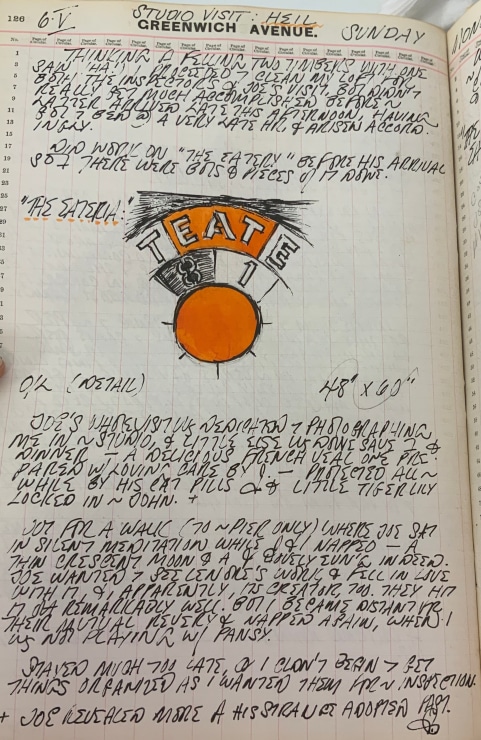 126
6·V
STUDIO VISIT: HEIL
GREENWICH AVENUE.
SUNDAY
THINKING A FELLING TWO TIMBERS WITH ONE
SAW, HAD PROCEEDED CLEAN MY LOFT FOR
BOTH THE INSPECTORS & JOE'S VISIT, BUT DIDN'T
REALLY GET MUCH ACCOMPLISHED BEFORE
LATTER ARRIVED LATE THIS AFTERNOON, HAVING
GOT BED @ A VERY LATE HR, & ARISEN ACCORD-
INGLY.
DID WORK ON "THE EATERY" BEFORE HIS ARRIVAL
SO THERE WERE BITS & PIECES OF IT DONE.
"THE EATERIA:"
T EAT E
8 1
O/C (DETAIL)
48" X 60"
JOE'S WHOLE VISIT WS DEDICATED PHOTOGRAPHING
ME IN ~ STUDIO, & LITTLE ELSE WS DONE SAVE
DINNER — A DELICIOUS FRENCH VEAL ONE PRE-
PARED W/ LOVING CARE BY — PROTECTED ALL ~
WHILE BY HIS CAT PILLS & LITTLE TIGER LILY
LOCKED IN ~ JOHN. +
OUT FOR A WALK (TO ~ PIER ONLY) WHERE JOE SAT
IN SILENT MEDITATION WHILE & I NAPPED — A
THIN CRESCENT MOON & A LOVELY EVNG INDEED.
JOE WANTED SEE LENORE'S WORK & FELL IN LOVE
WITH IT, & APPARENTLY, ITS CREATOR TOO. THEY HIT
IT OFF REMARKABLY WELL. BUT I BECAME DISTANT FR
THEIR MUTUAL REVERY & NAPPED AGAIN, WHEN I
WS NOT PLAYING W/ PANSY.
STAYED MUCH TOO LATE, & I DIDN'T BEGIN GET
THINGS ORGANIZED AS I WANTED THEM FR ~ INSPECTION.
+ JOE REVEALED MORE A HIS STRANGE ADOPTED PAST.